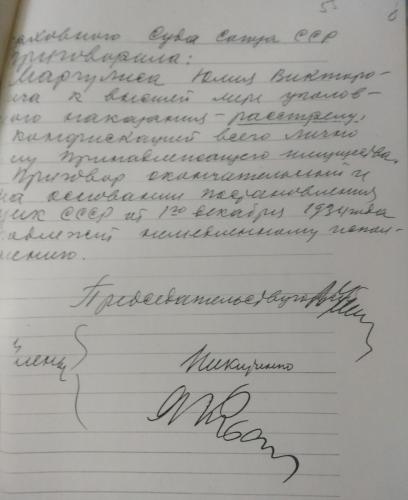 5. 6
рховного Суда Союза ССР
приговорила:
Маргулиса Юлия Викторо-
ича к высшей мере уголов-
ого наказания - расстрелу,
конфискацией всего лично
му принадлежащего имущества.
Приговор окончательный и
на основании постановления
ЦИК СССР от 1го декабря 1934 года
одлежит немедленному испол-
нению.
Председательствующий
члены
Микляченко